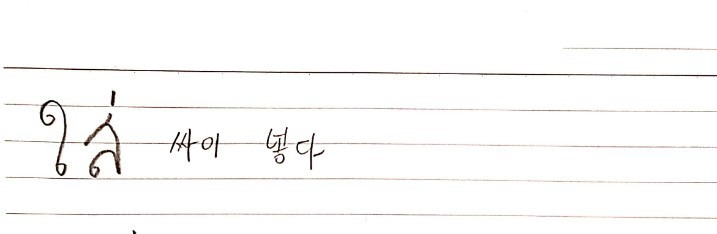 ใส่ 싸이 넣다